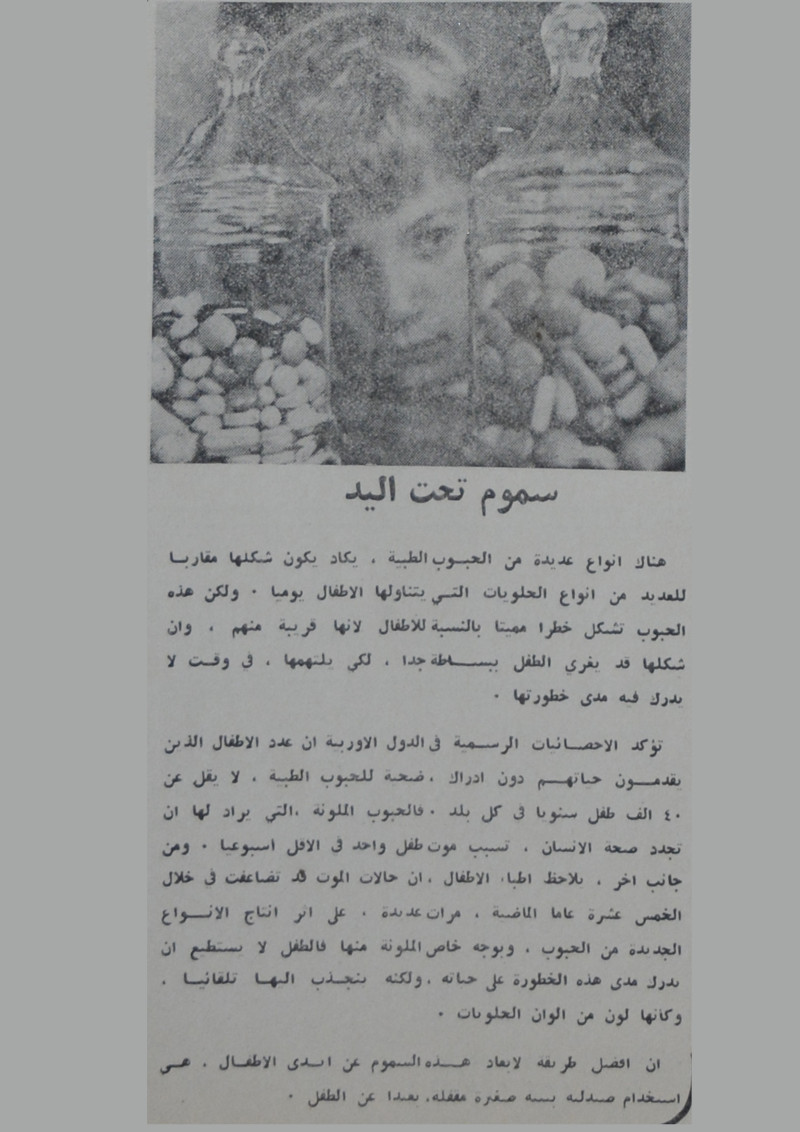 سموم تحت اليد
هناك انواع عديدة من الحبوب الطبية ، يكاد يكون شكلها مقاربا
للعديد من انواع الحلويات التي يتناولها الاطفال يوميا ٠ ولكن هذه
الحبوب تشكل خطرا مميتا بالنسبة للاطفال لانها قريبة منهم ، وان
شكلها قد يغري الطفل ببساطة جدا ، لكي يلتهمها ، في وقت لا
يدرك فيه مدى خطورتها ٠
تؤكد الاحصائيات الرسمية في الدول الاوربية ان عدد الاطفال الذين
يقدمون حياتهم دون ادراك ، ضحية للحبوب الطبية ، لا يقل عن
٤٠ الف طفل سنويا في كل بلد ٠ فالحبوب الملونة ، التي يراد لها ان
تجدد صحة الانسان ، تسبب موت طفل واحد في الاقل اسبوعيا ٠ ومن
جانب اخر ، يلاحظ اطباء الاطفال ، ان حالات الموت قد تضاعفت في خلال
الخمس عشرة عاما الماضية ، مرات عديدة ، على اثر انتاج الانواع
الجديدة من الحبوب ، وبوجه خاص الملونة منها فالطفل لا يستطيع ان
يدرك مدى هذه الخطورة على حياته ، ولكنه ينجذب اليها تلقائيا ،
وكأنها لون من الوان الحلويات ٠
ان افضل طريقة لابعاد هذه السموم عن ايدي الاطفال ، هي
استخدام صيدلية بيتية صغيرة مقفلة ، بعيدا عن الطفل ٠